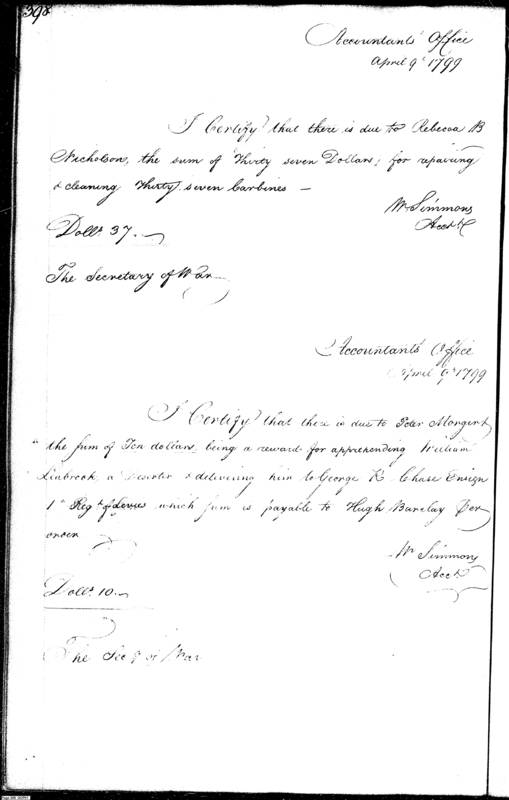 398
Accountants Office
April 9th 1799
I Certify that there is due to Rebecca B
Nicholson, the sum of Thirty seven Dollars, for repairing
& cleaning Thirty seven Carbines —
Wm Simmons
Acct
Dolls 37.
The Secretary of War
Accountants Office
April 9th 1799
I Certify that there is due to Peter
the sum of Ten dollars, being a reward for apprehending William
a Deserter & delivering him to George K. Chase Ensign
1st Regt of which sum is payable to Hugh Barclay Per
order
Wm Simmons
Acct
Dolls 10.
The Secy of War